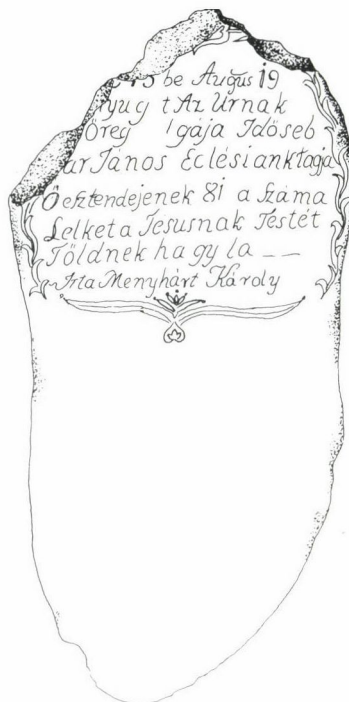 45 be Augus 19
nyug t Az Urnak
Öreg gája Idöseb
ar János Eclésiank tagja
Ö esztendejenek 81 a Száma
Lelket a Jesusnak Testét
Földnek hagyla _ _
Irta Menyhárt Károly